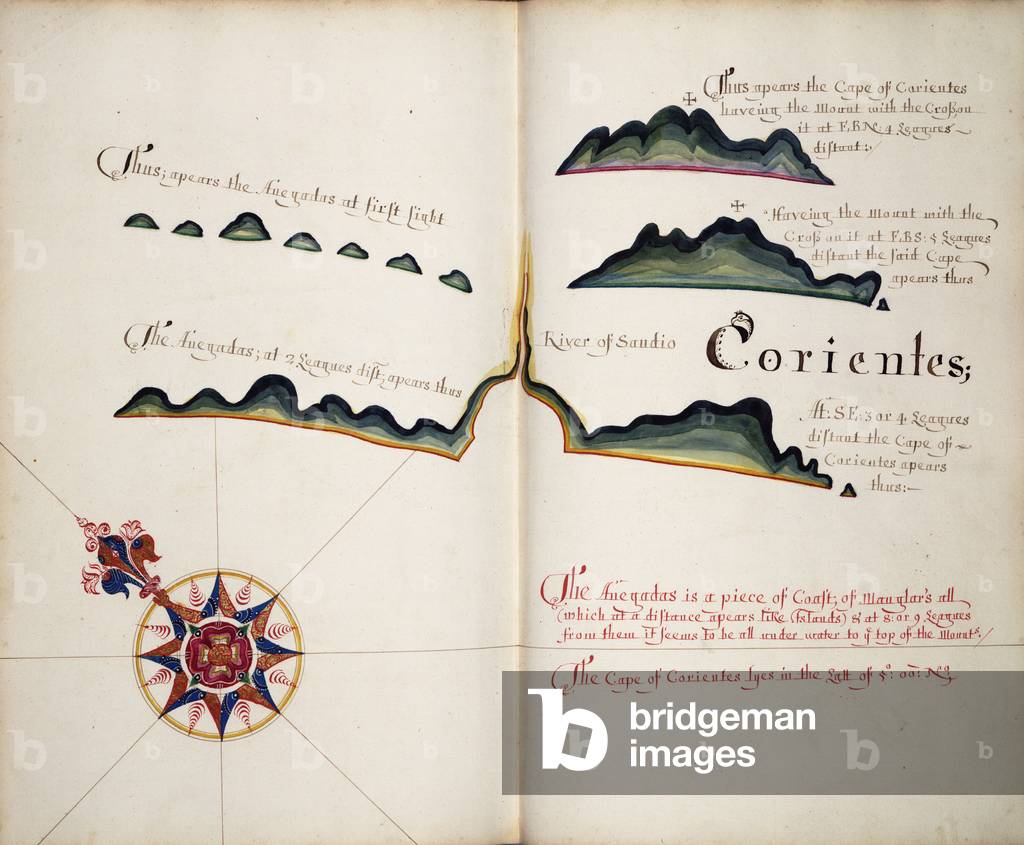 Thus; apears the Anegadas at first sight
The Anegadas; at 2 Leagues dist; apears thus
Thus apears the Cape of Corientes
haveing the Mount with the Cross on
it at E,BN: 4 Leagues
distant:
Haveing the Mount with the
Cross on it at E,BS: 5 Leagues
distant the said Cape
apears thus
River of Sandio
Corientes;
At: SE: 3 or 4 Leagues
distant the Cape of
Corientes apears
thus:
The Anegadas is a piece of Coast; of Manglar's all
(which at a distance apears like Islands) & at 8: or 9 Leagues
from them it seems to be all under water to ye top of the Mounts
The Cape of Corientes lyes in the Latt of 5°: 00: No
b bridgeman
images